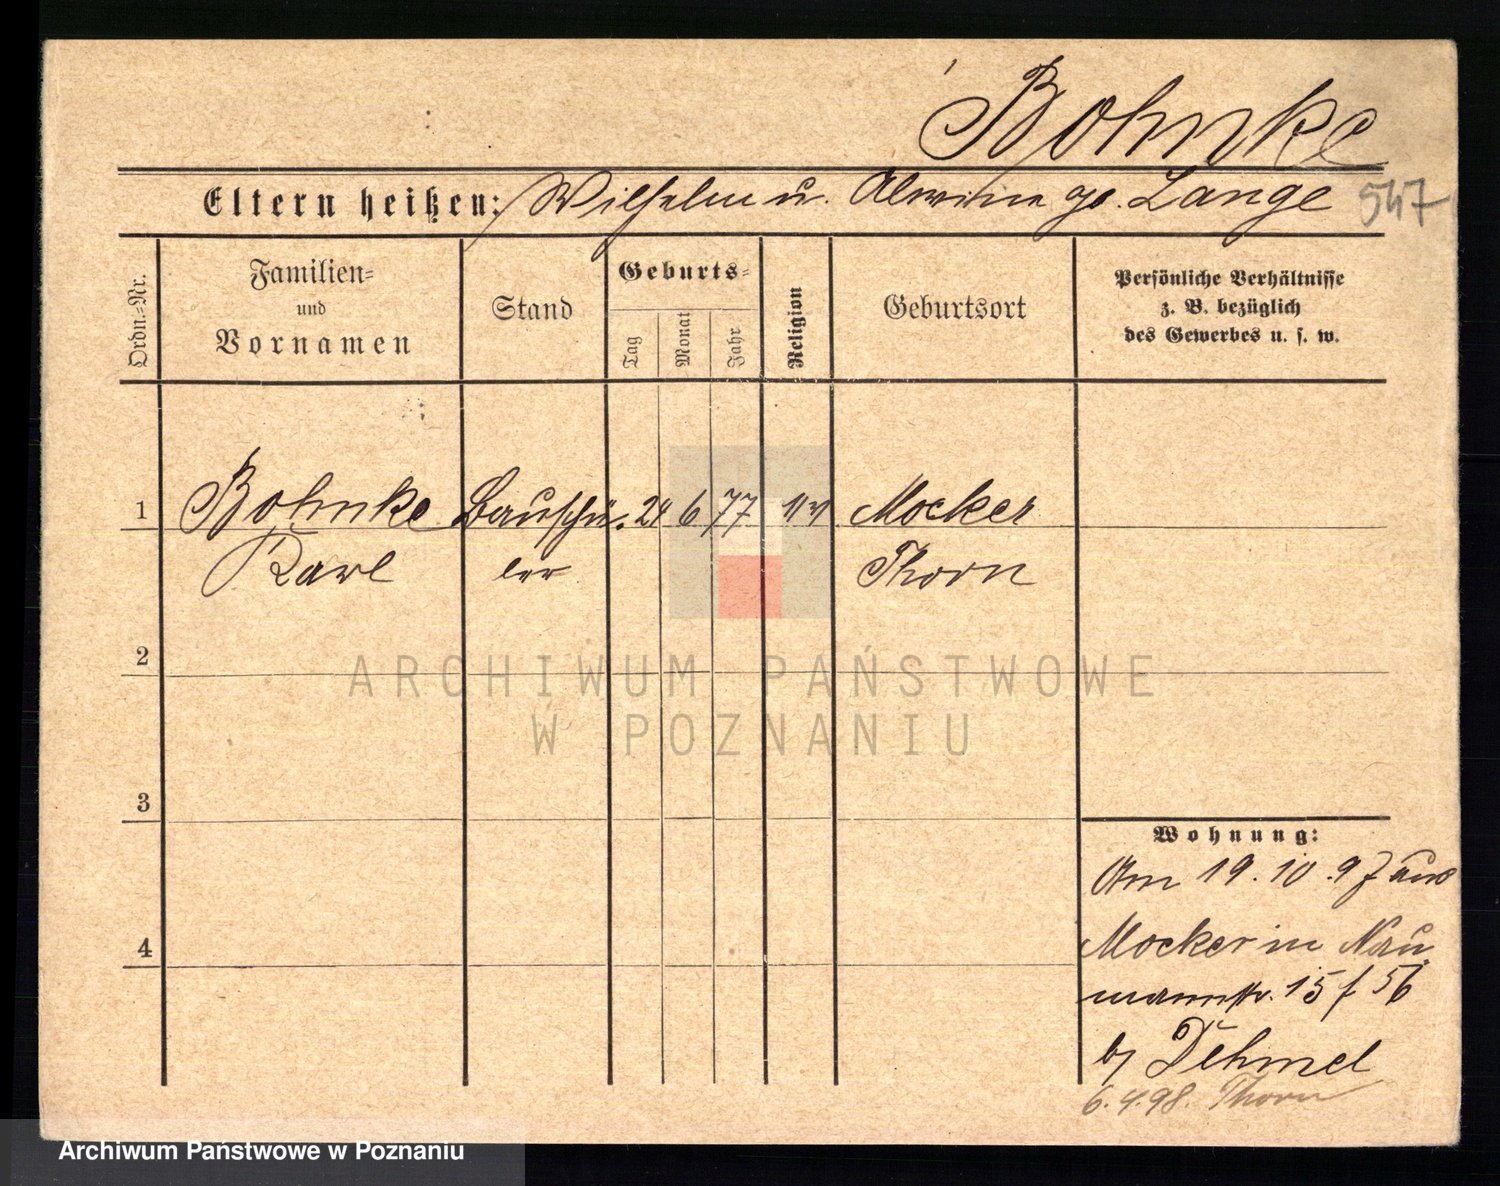 Bohnke
Eltern heißen: Wilhelm u. Alwine ge. Lange 547
Ordn.=Nr.
Familien=
und
Vornamen
Stand
Geburts=
Tag
Monat
Jahr
Religion
Geburtsort
Persönliche Verhältnisse
z. B. bezüglich
des Gewerbes u. s. w.
1 Bohnke Bauschü. 24 6 77 Mocker
Karl ler Thorn
2
3
4
Wohnung:
Am 19.10.97 aus
Mocker in Nau
mannstr. 15 f 56
by Dehmel
6.4.98. Thorn
ARCHIWUM PAŃSTWOWE
W POZNANIU
Archiwum Państwowe w Poznaniu